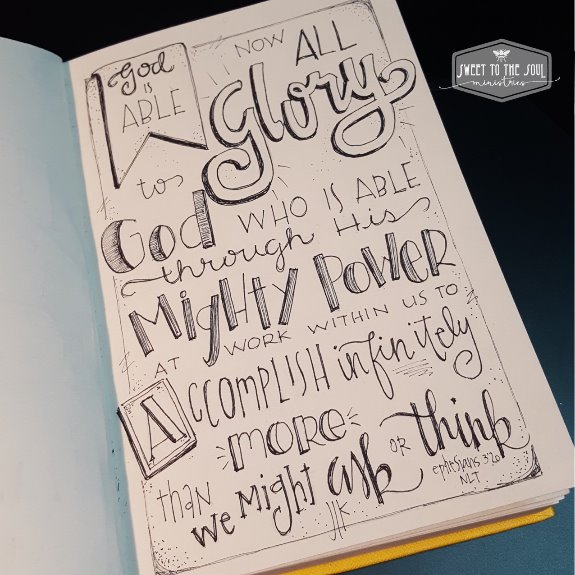 God
is
ABLE
NOW ALL
Glory
to
God WHO IS ABLE
through His
Mighty Power
AT WORK WITHIN US TO
ACCOMPLISH infinitely
more
than we might ask or think
ephesians 3:20
NLT
JLK
SWEET TO THE SOUL
ministries